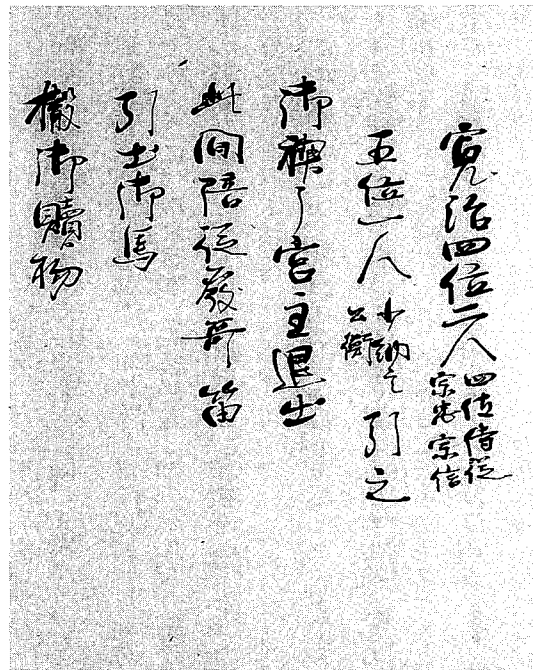 寛治四位二人四位侍従宗忠宗信
五位一人少納言公衡引之
御禊了宮主退出
此間陪従發哥笛
引出御馬
撤御贖物